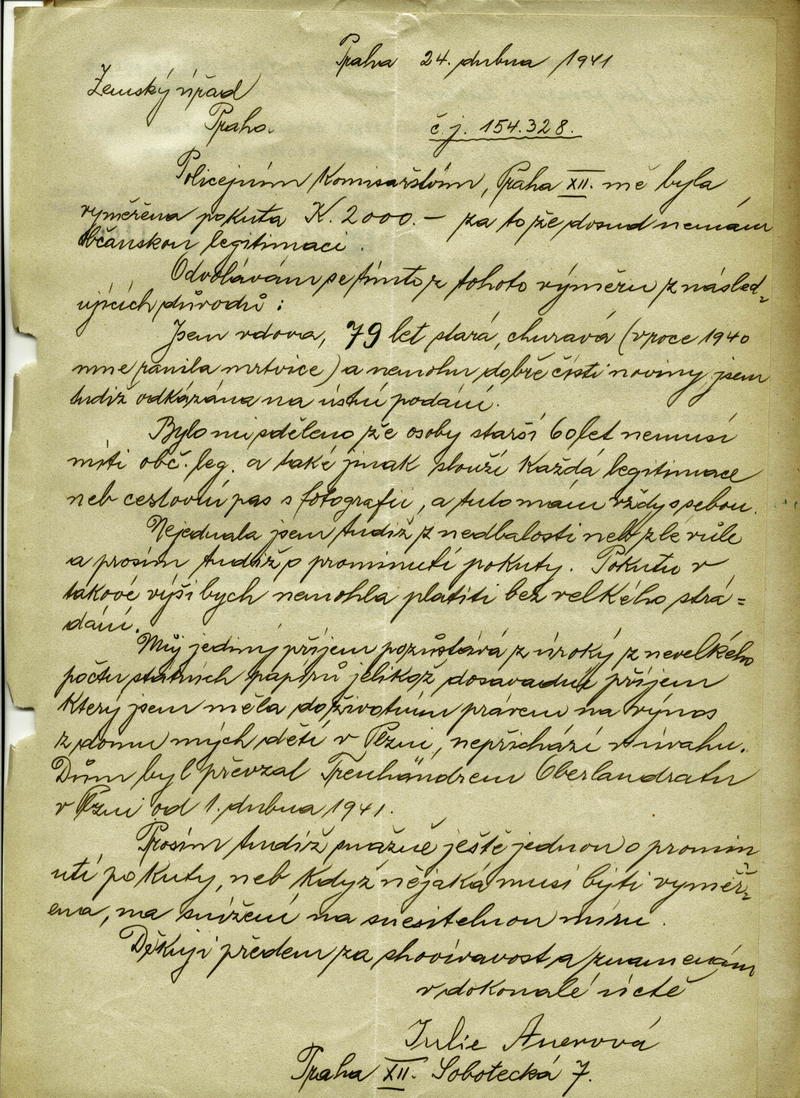 Praha 24. dubna 1941
Zemský úřad
Praha
č.j. 154.328.
Policejním Komisařstvím, Praha XII. mě byla
vyměřena pokuta K. 2000.– za to že dosud nemám
občanskou legitimaci.
Odvolávám se tímto z tohoto výměru z násled-
ujících důvodů:
Jsem vdova, 79 let stará, churavá (v roce 1940
mne ranila mrtvice) a nemohu dobře čísti noviny jsem
tudíž odkázána na ústní podání.
Bylo mi sděleno že osoby starší 60 let nemusí
míti obč. leg. a také jinak slouží každá legitimace
neb cestovní pas s fotografií, a tu tomám vždy s sebou.
Nejednala jsem tudíž z nedbalosti neb zlé vůle
a prosím tudíž o prominutí pokuty. Pokutu v
takové výši bych nemohla platiti bez velkého strá=
dání.
Můj jediný příjem pozůstává z úroků z nevelkého
počtu státních papírů jelikož dosavadní příjem
který jsem měla doživotním právem na výnos
z domu mých dětí v Plzni, nepřichází v úvahu.
Dům byl převzal Treuhändrem Oberlandratu
v Plzni od 1. dubna 1941.
Prosím tudíž snažně ještě jednou o promin
utí pokuty, neb když nějaká musí býti vyměř-
ena, na snížení na snesitelnou míru.
Děkuji předem za shovívavost a znamenám
v dokonalé úctě
Julie Auerová
Praha XII. Sobotecká 7.